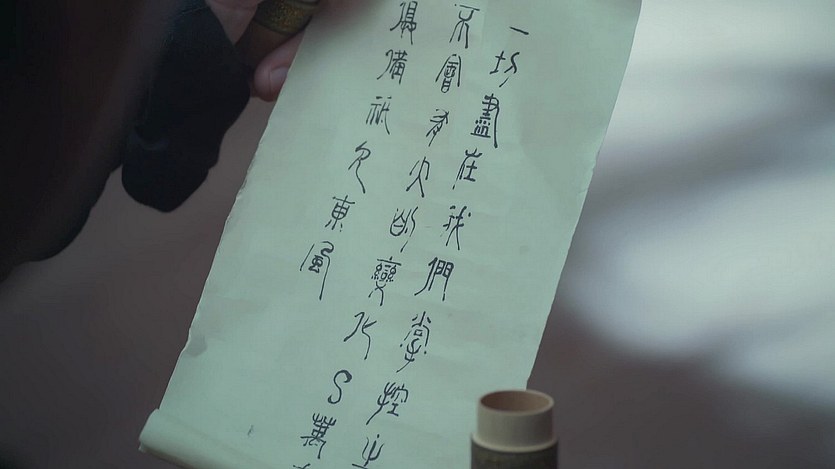 一切盡在我們掌控之
不會有大的變化S萬
俱備祇欠東風